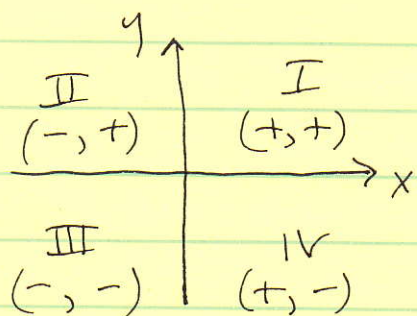 y
II I
(-, +) (+, +)
x
III IV
(-, -) (+, -)